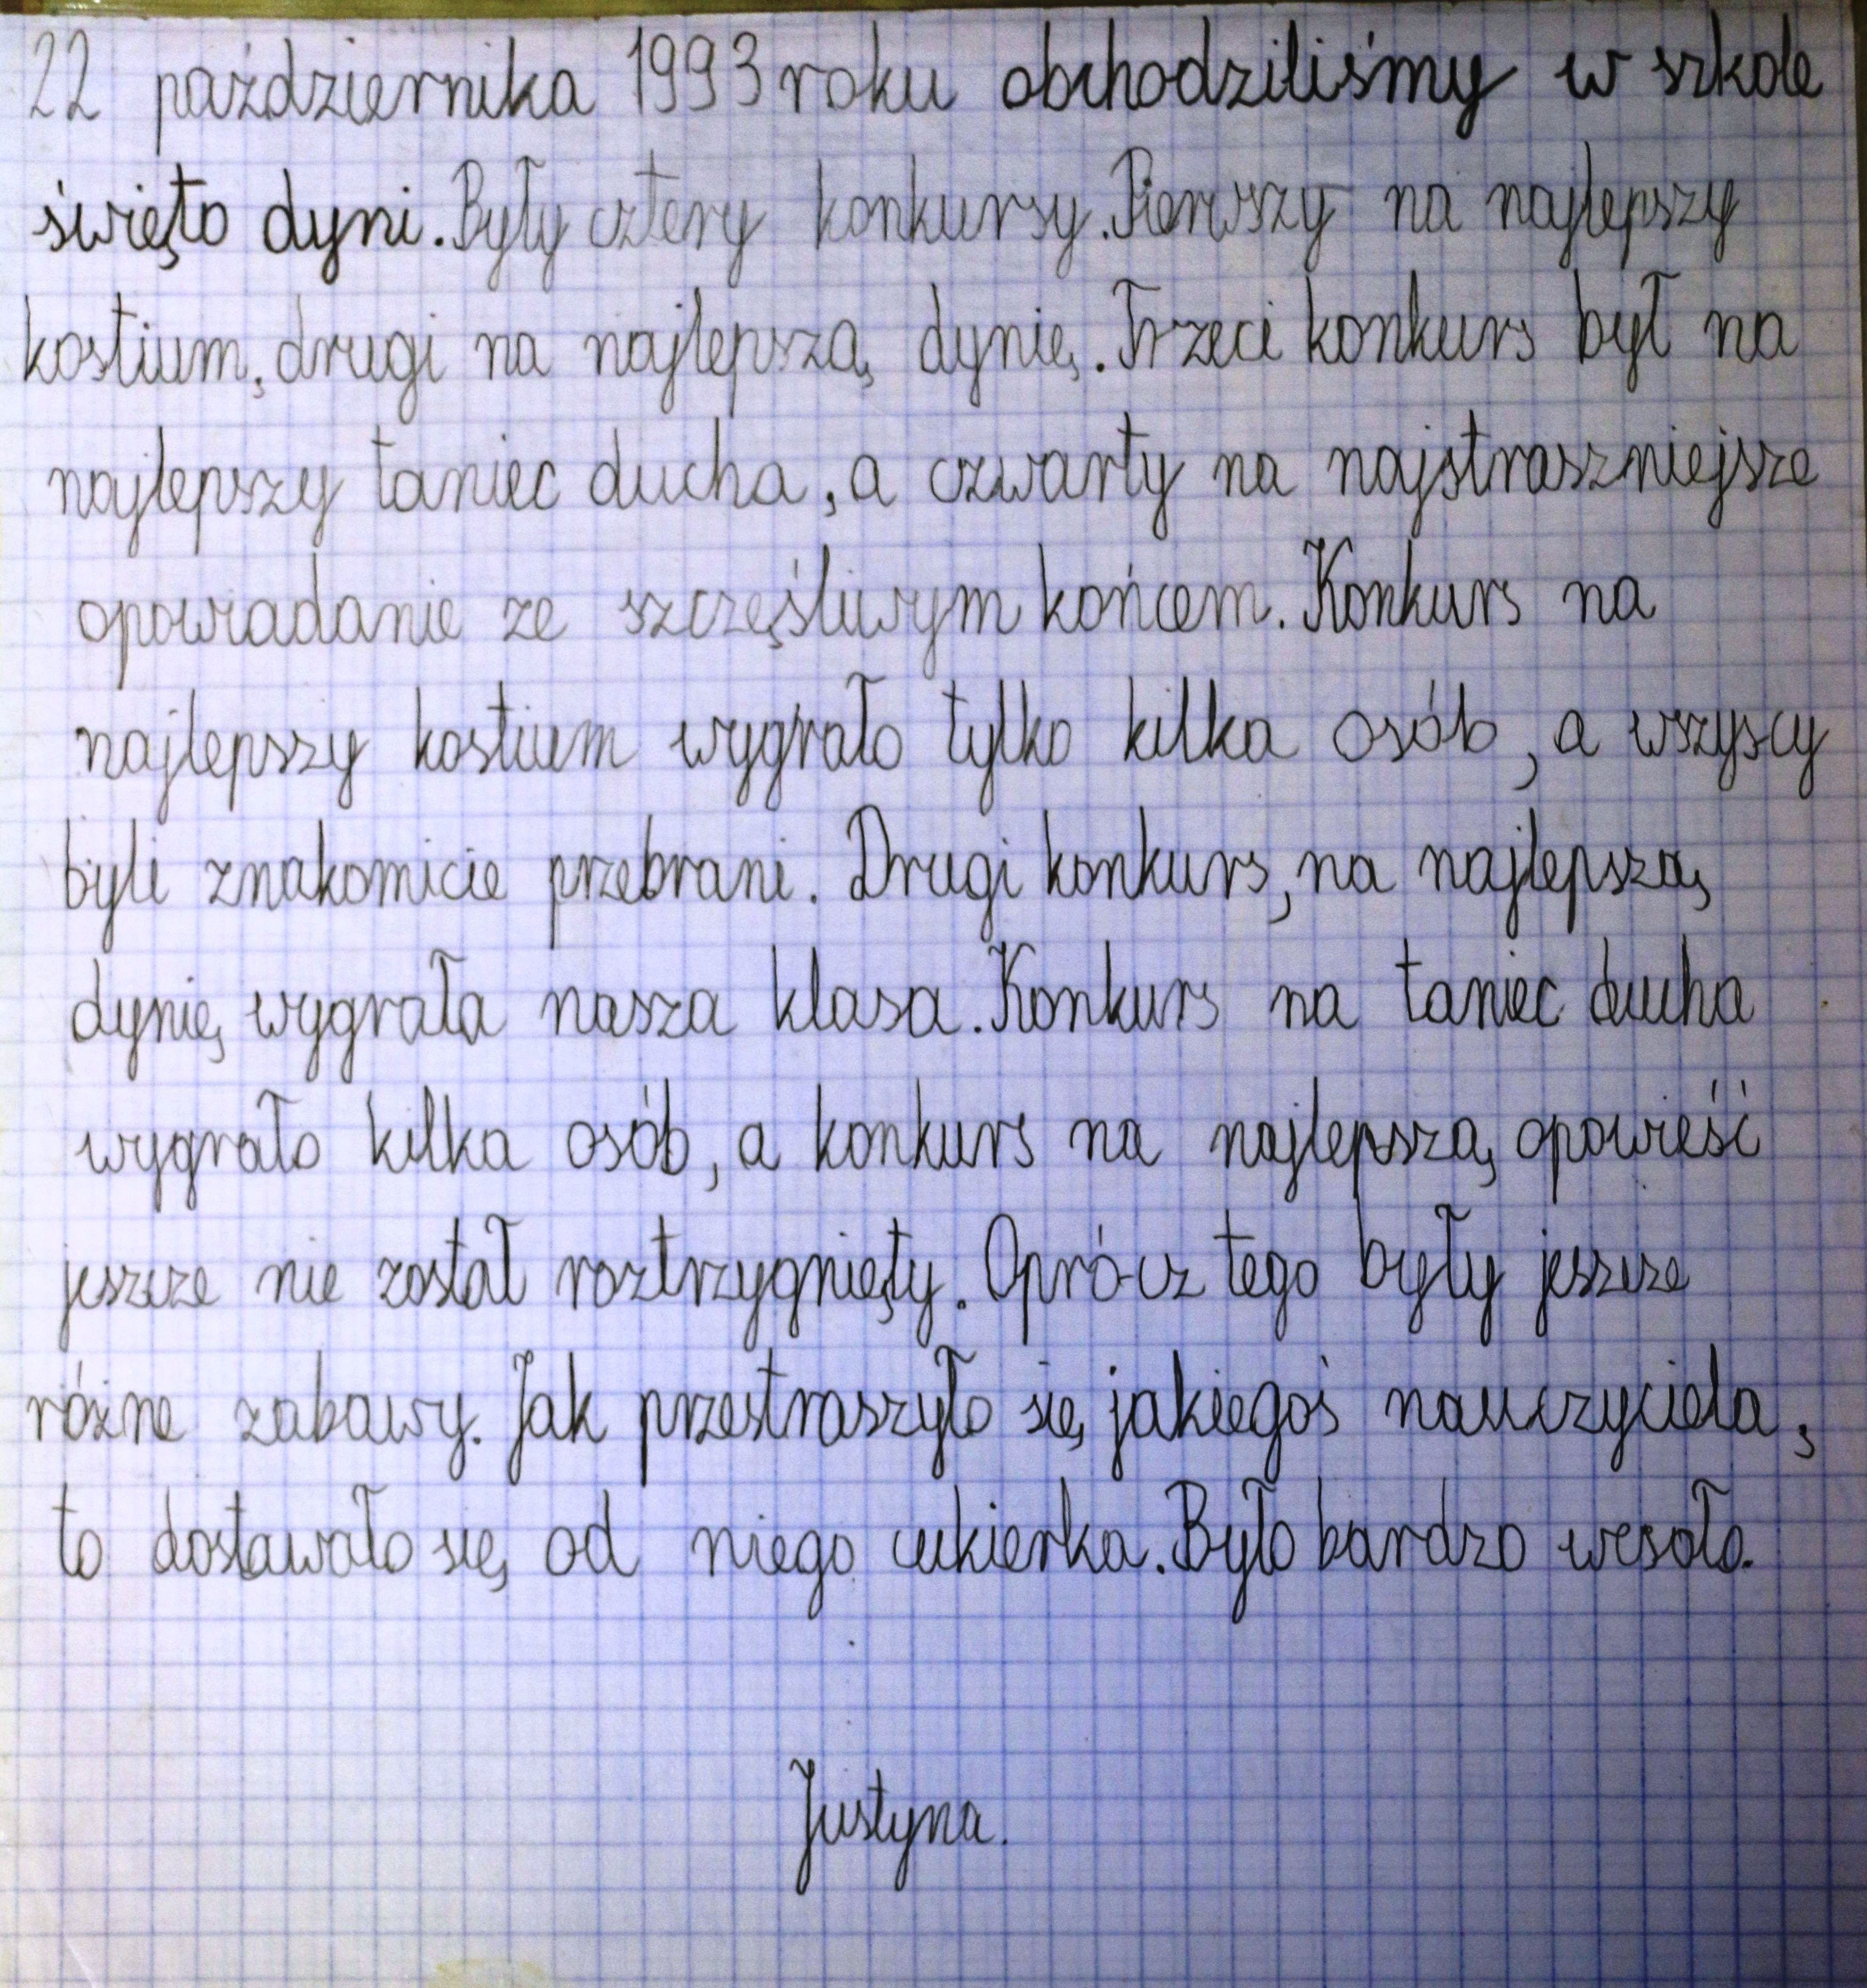 22 października 1993 roku obchodziliśmy w szkole
święto dyni. Były cztery konkursy. Pierwszy na najlepszy
kostium, drugi na najlepszą dynię. Trzeci konkurs był na
najlepszy taniec ducha, a czwarty na najstraszniejsze
opowiadanie ze szczęśliwym końcem. Konkurs na
najlepszy kostium wygrało tylko kilka osób, a wszyscy
byli znakomicie przebrani. Drugi konkurs, na najlepszą
dynię wygrała nasza klasa. Konkurs na taniec ducha
wygrało kilka osób, a konkurs na najlepszą opowieść
jeszcze nie został roztrzygnięty. Oprócz tego były jeszcze
różne zabawy. Jak przestraszyło się jakiegoś nauczyciela,
to dostawało się od niego cukierka. Było bardzo wesoło.
Justyna.